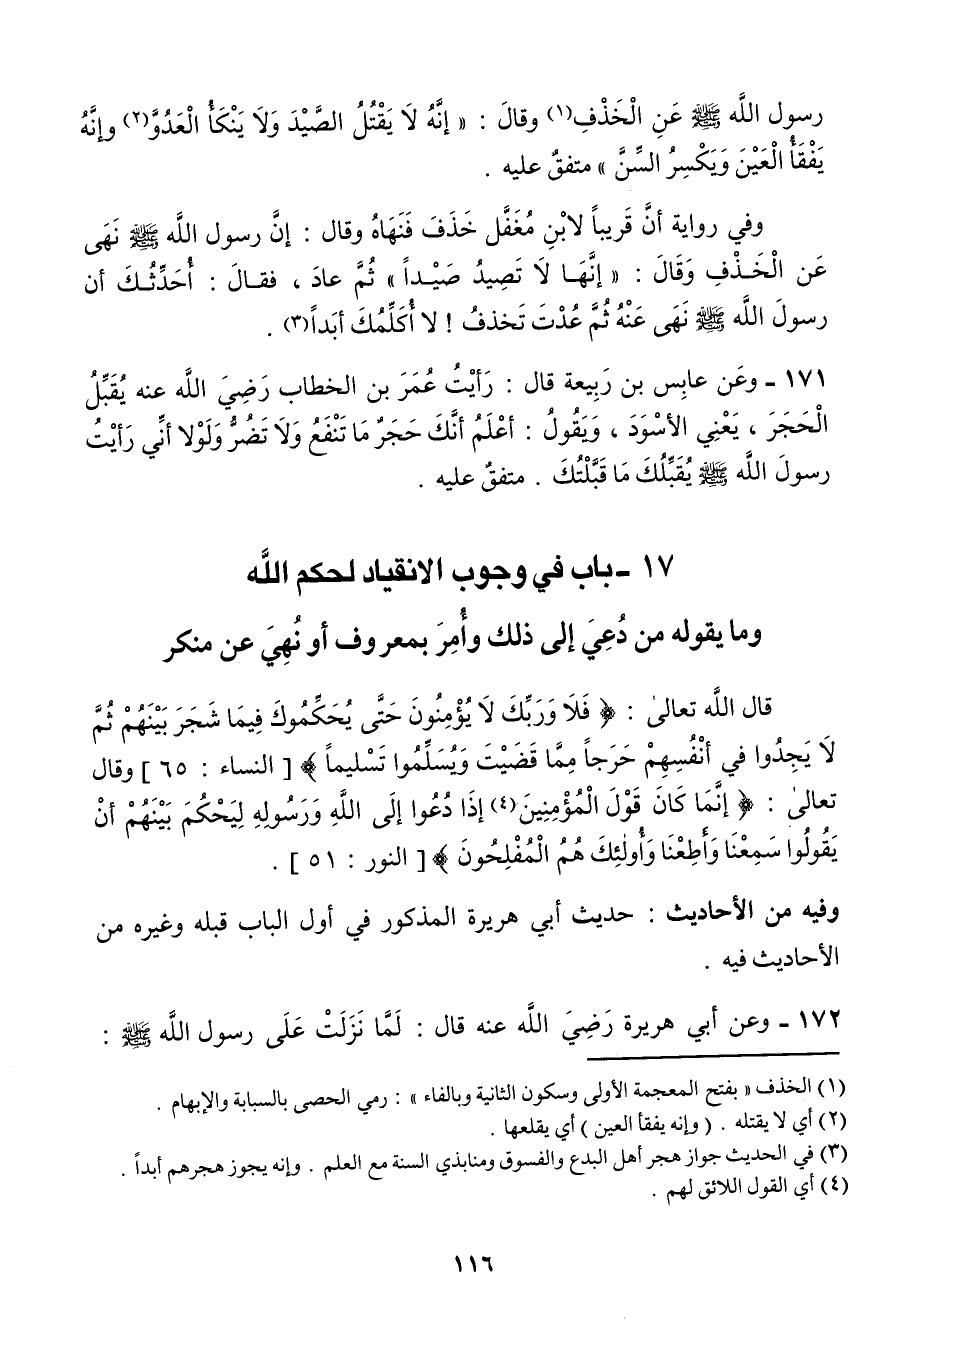 رسول اللَّه ﷺ عَنِ الْخَذْفِ(١) وقالَ : « إنَّهُ لَا يَقْتُلُ الصَّيْدَ وَلَا يَنْكَأُ الْعَدُوَّ(٢) وإنَّهُ
يَفْقَأُ الْعَيْنَ وَيَكْسِرُ السِّنَّ » متفقٌ عليه .
وفي رواية أنَّ قَرِيباً لابْنِ مُغَفَّل خَذَفَ فَنَهَاهُ وقال : إنَّ رسول اللَّه ﷺ نَهَى
عَن الْخَذْفِ وَقَالَ : « إنَّهَا لَا تَصِيدُ صَيْداً » ثُمَّ عادَ ، فقالَ : أُحَدِّثُكَ أن
رسولَ اللَّه ﷺ نَهَى عَنْهُ ثُمَّ عُدْتَ تَخذفُ ! لا أُكَلِّمُكَ أبَداً(٣) .
١٧١ - وعَن عابِس بن رَبِيعة قال : رَأيْتُ عُمَرَ بن الخطاب رَضِيَ اللَّه عنه يُقَبِّلُ
الْحَجَرَ ، يَعْنِي الأسْوَدَ ، وَيَقُولُ : أعْلَمُ أنَّكَ حَجَرٌ مَا تَنْفَعُ وَلَا تَضُرُّ وَلَوْلا أنِّي رَأيْتُ
رسولَ اللَّه ﷺ يُقَبِّلُكَ مَا قَبَّلْتُكَ . متفقٌ عليه .
١٧ - باب في وجوب الانقياد لحكم اللَّه
وما يقوله من دُعِيَ إلى ذلك وأُمِرَ بمعروف أو نُهِيَ عن منكر
قال اللَّه تعالىٰ : ﴿ فَلَا وَرَبِّكَ لَا يُؤْمِنُونَ حَتَّى يُحَكِّمُوكَ فِيمَا شَجَرَ بَيْنَهُمْ ثُمَّ
لَا يَجِدُوا في أنْفُسِهِمْ حَرَجاً مِمَّا قَضَيْتَ وَيُسَلِّمُوا تَسْلِيماً ﴾ [ النساء : ٦٥ ] وقال
تعالىٰ : ﴿ إنَّمَا كَانَ قَوْلَ الْمُؤْمِنِينَ(٤) إذَا دُعُوا إلَى اللَّهِ وَرَسُولِهِ لِيَحْكُمَ بَيْنَهُمْ أنْ
يَقُولُوا سَمِعْنَا وَأَطِعْنَا وَأُولٰئِكَ هُمُ الْمُفْلِحُونَ ﴾ [ النور : ٥١ ] .
وفيه من الأحاديث : حديث أبي هريرة المذكور في أول الباب قبله وغيره من
الأحاديث فيه .
١٧٢ - وعن أبي هريرة رَضِيَ اللَّه عنه قال : لَمَّا نَزَلَتْ عَلَى رسول اللَّه ﷺ :
(١) الخذف « بفتح المعجمة الأولى وسكون الثانية وبالفاء » : رمي الحصى بالسبابة والإبهام .
(٢) أي لا يقتله . ( وإنه يفقأ العين ) أي يقلعها .
(٣) في الحديث جواز هجر أهل البدع والفسوق ومنابذي السنة مع العلم . وإنه يجوز هجرهم أبداً .
(٤) أي القول اللائق لهم .
١١٦